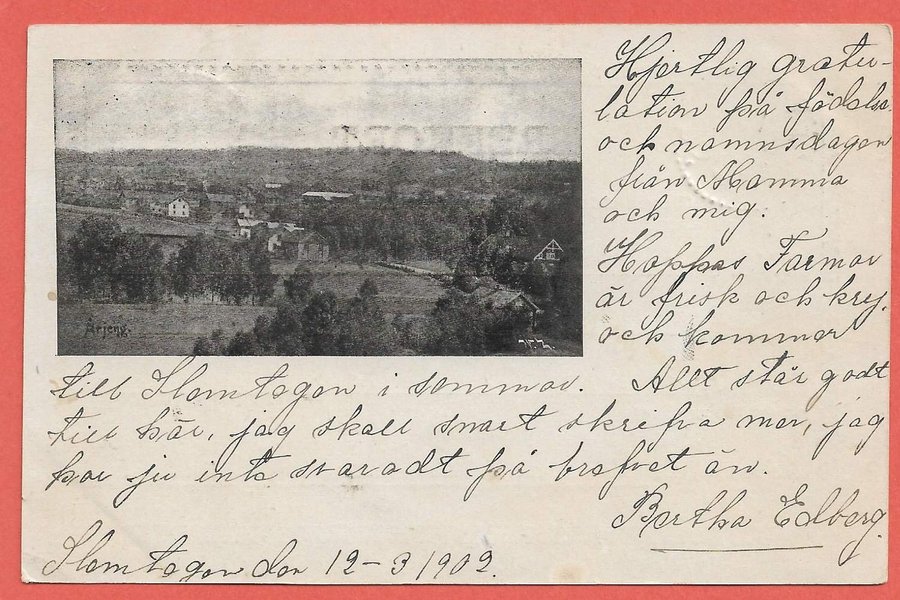 Hjertlig gratu-
lation på födels
och namnsdagen
från Mamma
och mig.
Hoppas Farmor
är frisk och kry
och kommer
till Slomtagen i sommar. Allt står godt
till här, jag skall snart skrifva mer, jag
har ju inte svaradt på brefvet än.
Bertha Edberg.
Slomtagen den 12-3 1902.
Årjeng.